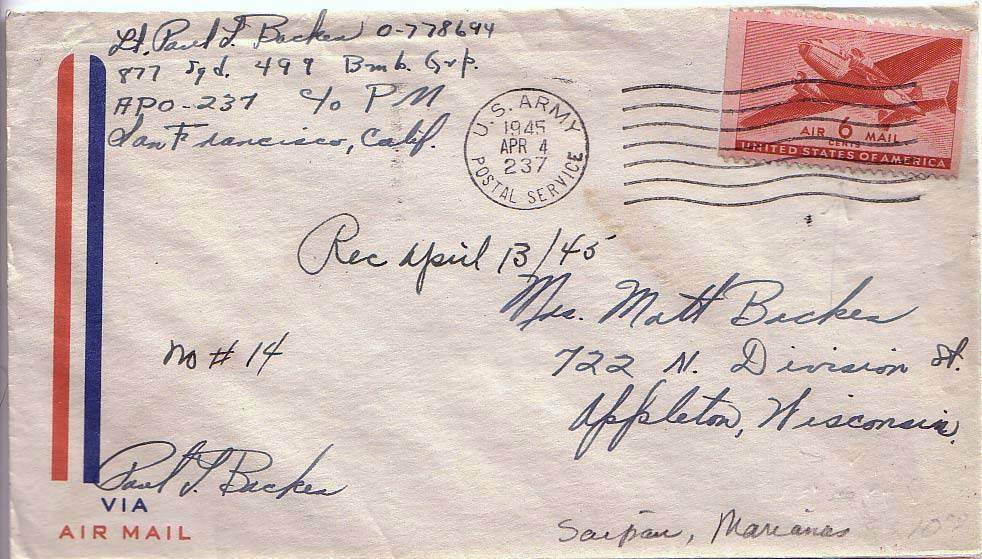 Lt. Paul T. Backes O-778694
877 Sqd. 499 Bmb. Grp.
APO-237 c/o PM
San Francisco, Calif.
U.S. ARMY
1945
APR 4
237
POSTAL SERVICE
AIR 6 MAIL
CENTS
UNITED STATES OF AMERICA
Rec April 13/45
Mrs. Matt Backes
722 N. Division St.
Appleton, Wisconsin.
No # 14
Paul T. Backes
VIA
AIR MAIL
Saipan, Marianas